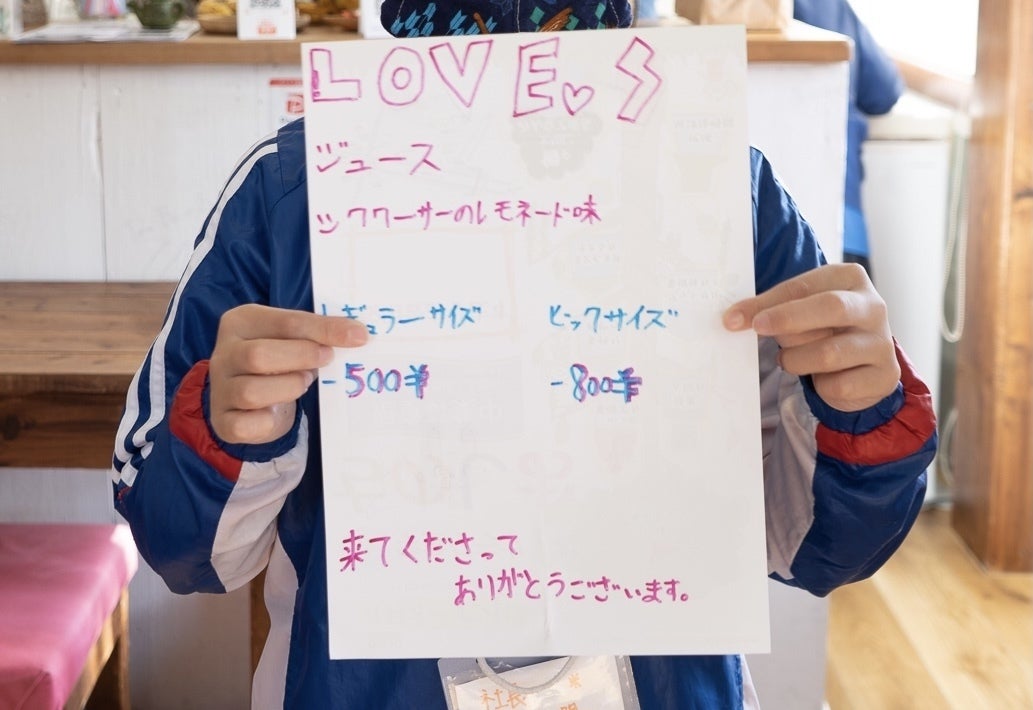 LOVE♡S
ジュース
シークワーサーのレモネード味
レギュラーサイズ ビックサイズ
-500¥ -800¥
来てくださって
ありがとうございます。
社長